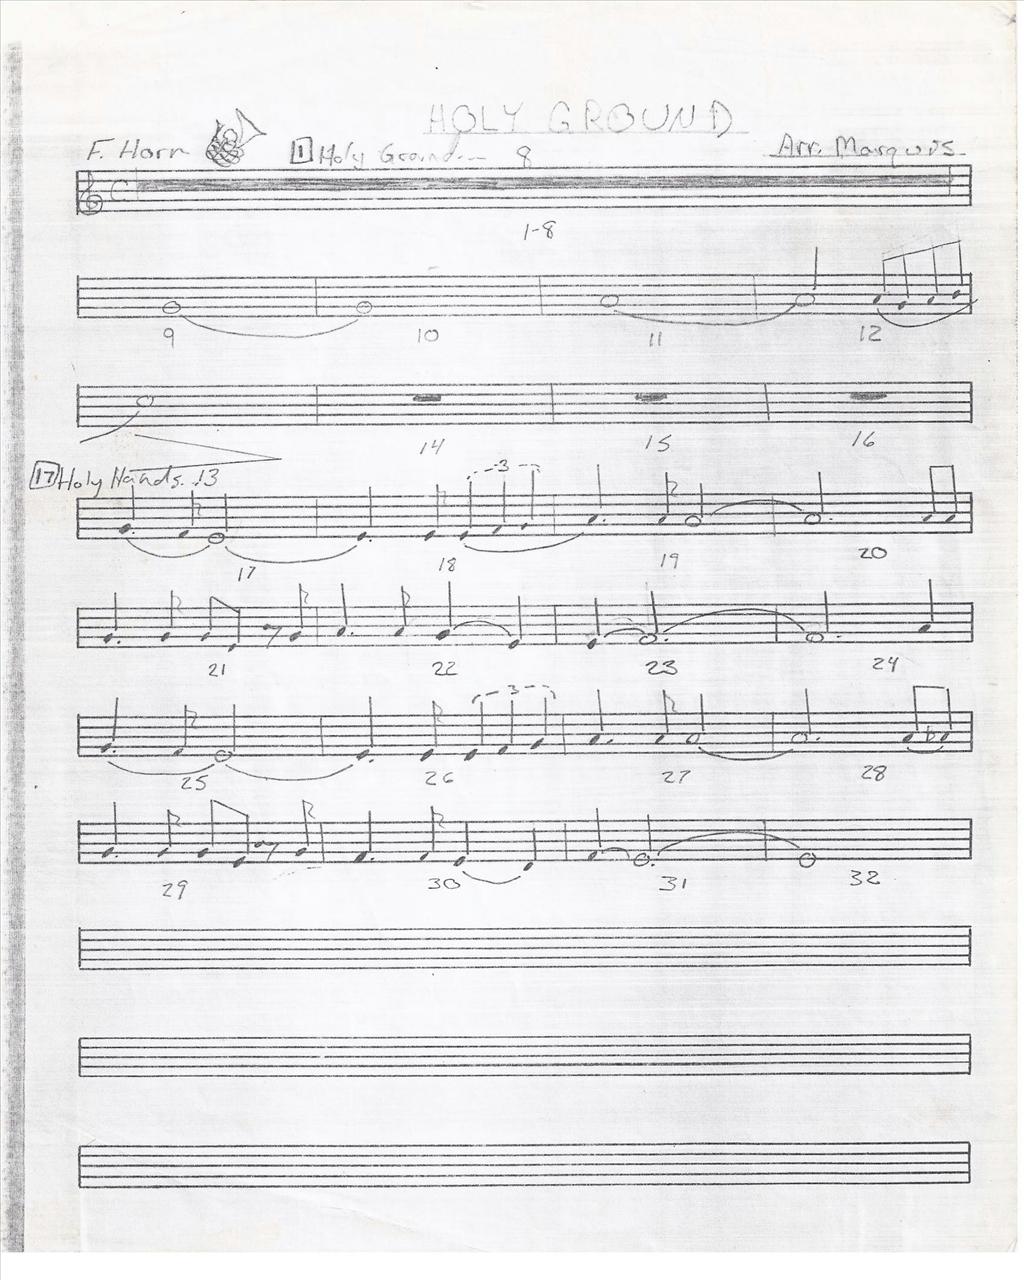 HOLY GROUND
F. Horn
1 Holy Ground... 8
Arr. Marquis
C
1-8
9 10 11 12
14 15 16
17 Holy Hands. 13
3
17 18 19 20
21 22 23 24
3
25 26 27 28
29 30 31 32